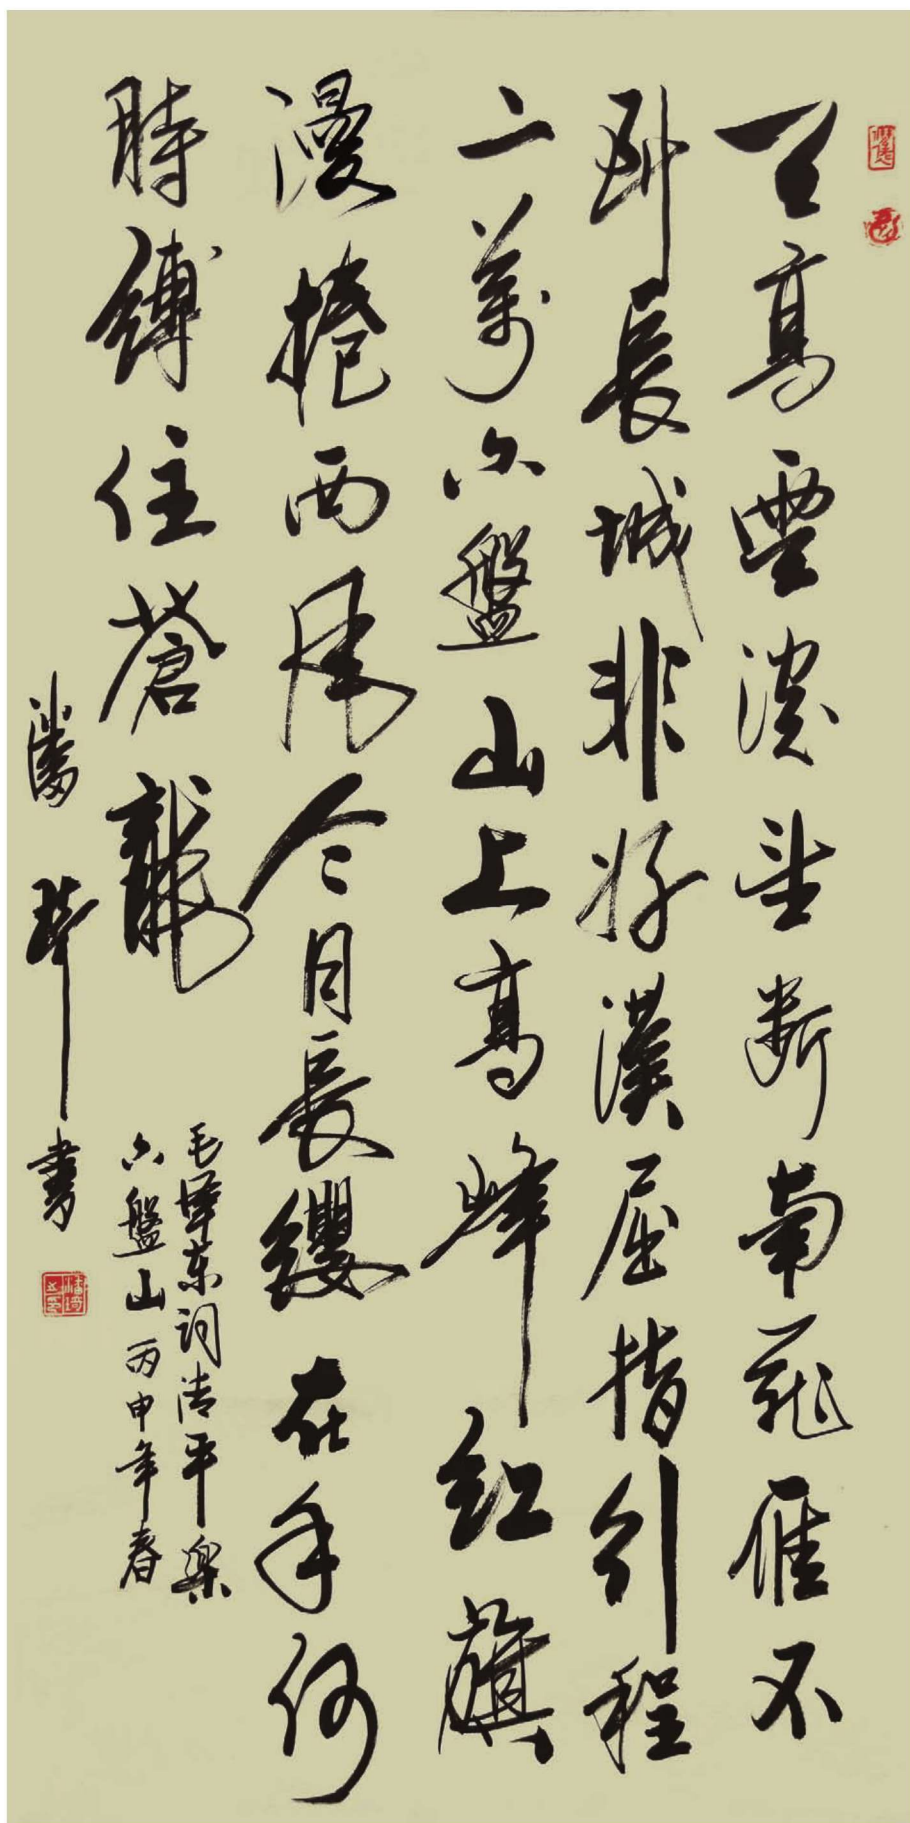 天高雲淡望斷南飛雁不
到長城非好漢屈指行程
二萬六盤山上高峰紅旗
漫捲西風今日長纓在手何
時縛住蒼龍
毛澤东詞清平樂
六盤山丙申年春
潘琦書
潘琦之印